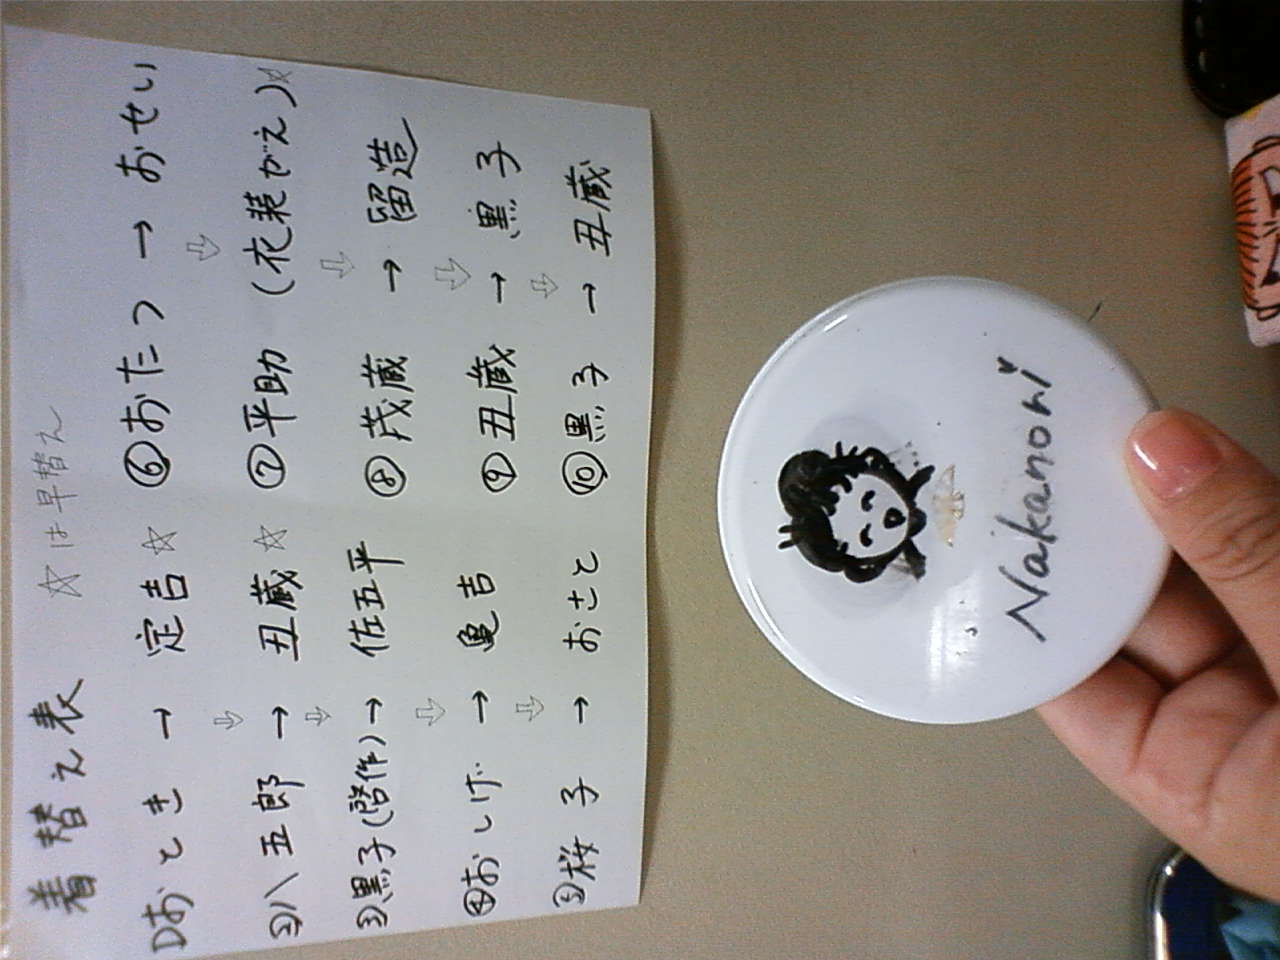 着替え表 ☆は早替え
①おとき → 定吉☆
⇩
②八五郎 → 丑蔵☆
⇩
③黒子(啓作) → 佐五平
⇩
④おしげ → 亀吉
⇩
⑤桜子 → おさと
⑥おたつ → おせい
⇩
⑦平助 (衣装がえ)☆
⇩
⑧茂蔵 → 留造
⇩
⑨丑蔵 → 黒子
⇩
⑩黒子 → 丑蔵
Nakanori